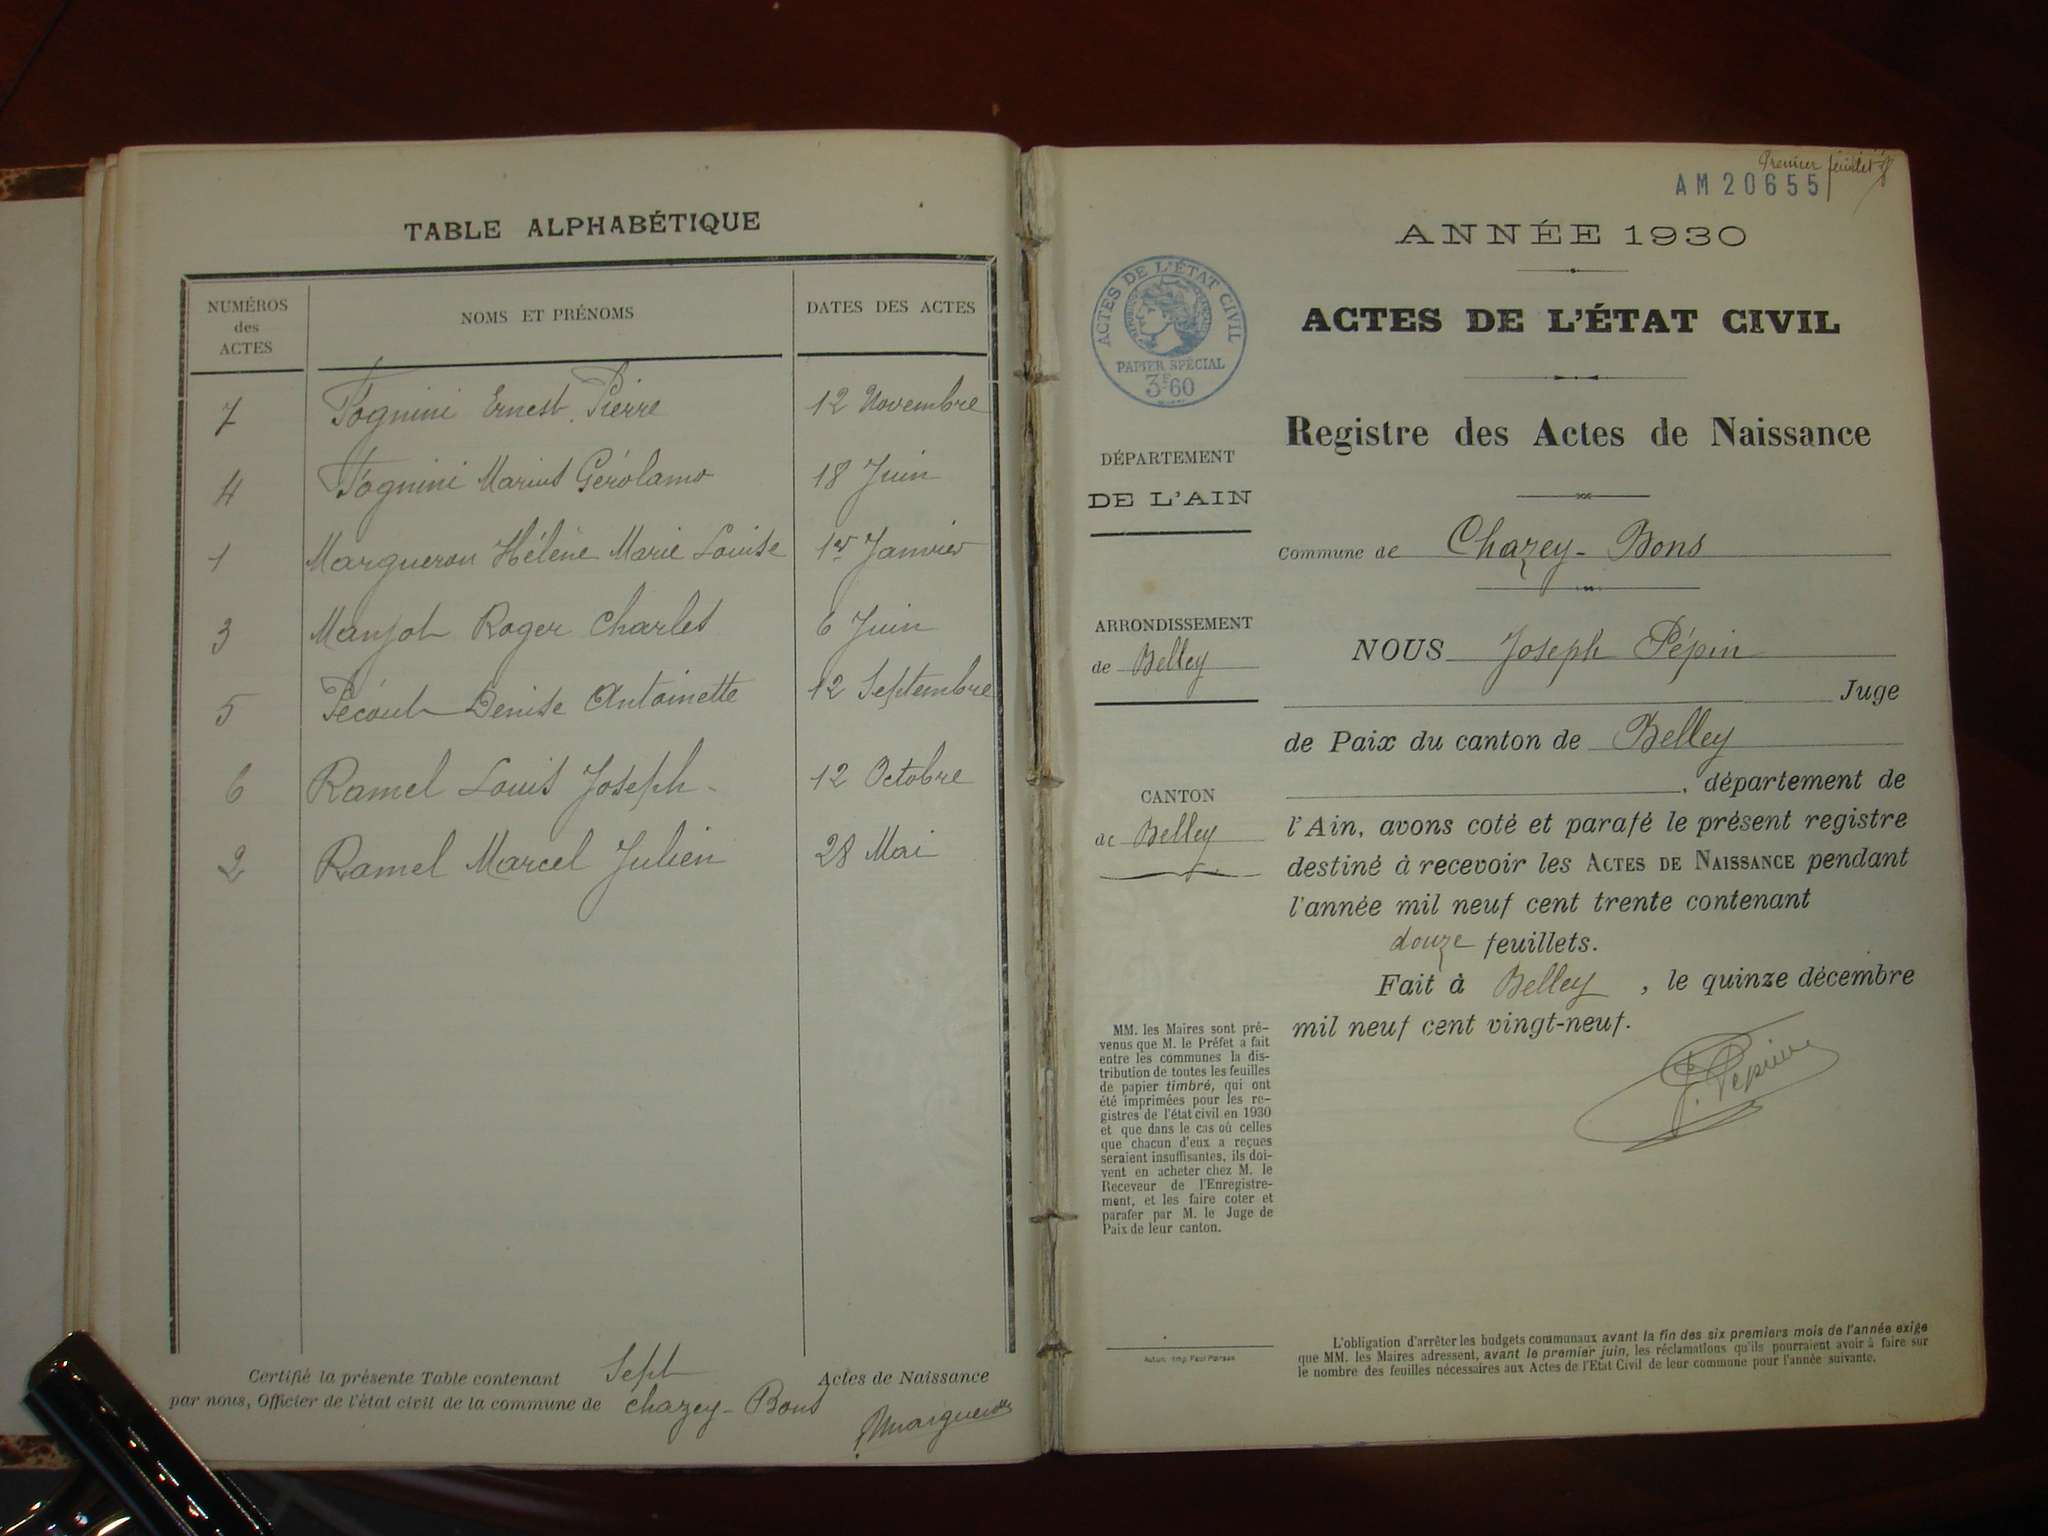 TABLE ALPHABÉTIQUE
NUMÉROS des ACTES
NOMS ET PRÉNOMS
DATES DES ACTES
7 Fognini Ernest Pierre 12 Novembre
4 Fognini Marius Gérolamo 18 Juin
1 Margueron Hélène Marie Louise 1er Janvier
3 Manjot Roger Charles 6 Juin
5 Pécoul Denise Antoinette 12 Septembre
6 Ramel Louis Joseph 12 Octobre
2 Ramel Marcel Julien 28 Mai
Certifié la présente Table contenant Sept Actes de Naissance
par nous, Officier de l'état civil de la commune de Chazey-Bons
Margueron
Premier feuillet
AM 20655
ANNÉE 1930
ACTES DE L'ÉTAT CIVIL
PAPIER SPÉCIAL
3F60
ACTES DE L'ÉTAT CIVIL
Registre des Actes de Naissance
DÉPARTEMENT
DE L'AIN
Commune de Chazey-Bons
ARRONDISSEMENT
de Belley
CANTON
de Belley
NOUS Joseph Pépin
Juge
de Paix du canton de Belley
, département de
l'Ain, avons coté et parafé le présent registre
destiné à recevoir les ACTES DE NAISSANCE pendant
l'année mil neuf cent trente contenant
douze feuillets.
Fait à Belley, le quinze décembre
mil neuf cent vingt-neuf.
J. Pépin
MM. les Maires sont pré-
venus que M. le Préfet a fait
entre les communes la dis-
tribution de toutes les feuilles
de papier timbré, qui ont
été imprimées pour les re-
gistres de l'état civil en 1930
et que dans le cas où celles
que chacun d'eux a reçues
seraient insuffisantes, ils doi-
vent en acheter chez M. le
Receveur de l'Enregistre-
ment, et les faire coter et
parafer par M. le Juge de
Paix de leur canton.
L'obligation d'arrêter les budgets communaux avant la fin des six premiers mois de l'année exige
que MM. les Maires adressent, avant le premier juin, les réclamations qu'ils pourraient avoir à faire sur
le nombre des feuilles nécessaires aux Actes de l'Etat Civil de leur commune pour l'année suivante.